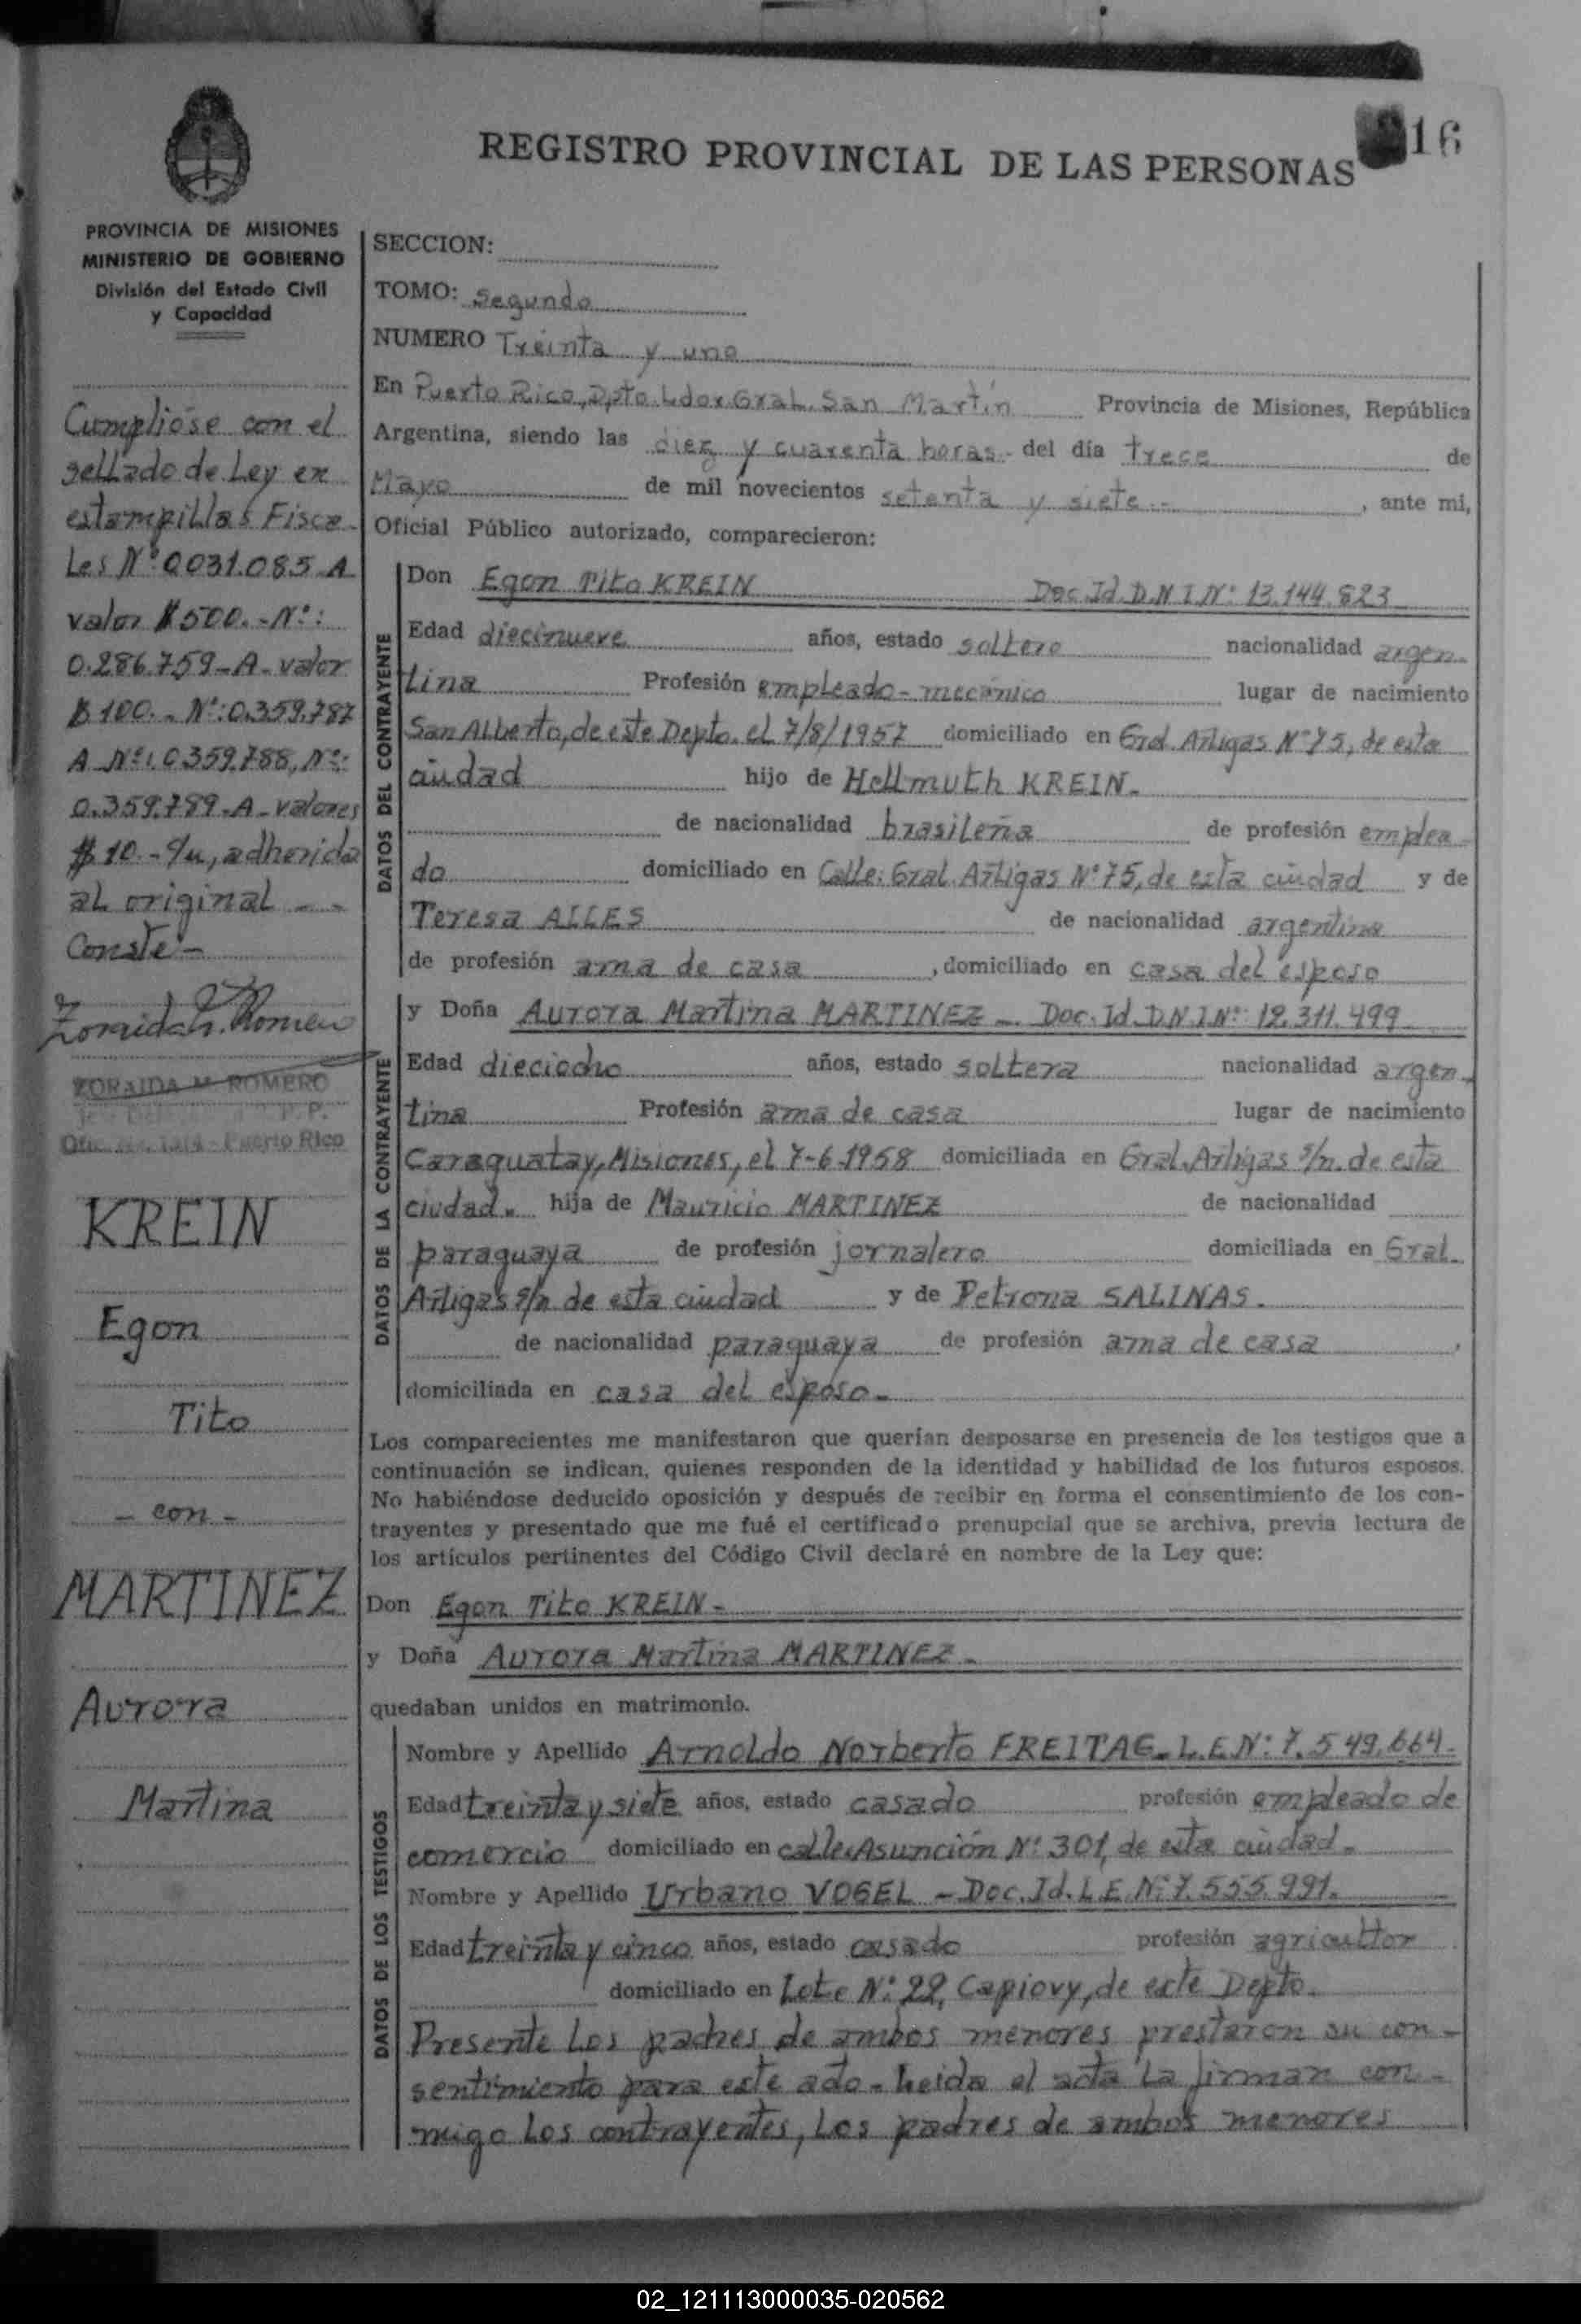 REGISTRO PROVINCIAL DE LAS PERSONAS
16
PROVINCIA DE MISIONES
MINISTERIO DE GOBIERNO
División del Estado Civil
y Capacidad
Cumplióse con el
sellado de Ley en
estampillas Fisca-
les Nº 0031.085 A
valor $500.- Nº:
0.286.759-A- valor
$ 100.- Nº: 0.359.787
A Nº: 0359.788, Nº:
0.359.789-A- valores
$ 10.- c/u, adherida
al original - -
Conste:-
Zoraida M. Romero
ZORAIDA M. ROMERO
Puerto Rico
KREIN
Egon
Tito
- con -
MARTINEZ
Aurora
Martina
SECCION:
TOMO: Segundo
NUMERO Treinta y uno
En Puerto Rico, Dpto. Ldor. Gral. San Martín Provincia de Misiones, República
Argentina, siendo las diez y cuarenta horas.- del día trece de
Mayo de mil novecientos setenta y siete.- , ante mi,
Oficial Público autorizado, comparecieron:
DATOS DEL CONTRAYENTE
Don Egon Tito KREIN Doc. Id. D.N.I. Nº: 13.144.823
Edad diecinueve años, estado soltero nacionalidad argen-
tina Profesión empleado-mecánico lugar de nacimiento
San Alberto, de este Depto. el 7/8/1957 domiciliado en Gral. Artigas Nº 75, de esta
ciudad hijo de Hellmuth KREIN.
de nacionalidad brasileña de profesión emplea-
do domiciliado en Calle: Gral. Artigas Nº 75, de esta ciudad y de
Teresa ALLES de nacionalidad argentina
de profesión ama de casa , domiciliado en casa del esposo
DATOS DE LA CONTRAYENTE
y Doña Aurora Martina MARTINEZ - Doc. Id. D.N.I. Nº: 12.311.499
Edad dieciocho años, estado soltera nacionalidad argen-
tina Profesión ama de casa lugar de nacimiento
Caraguatay, Misiones, el 7-6-1958 domiciliada en Gral. Artigas s/n. de esta
ciudad. hija de Mauricio MARTINEZ de nacionalidad
paraguaya de profesión jornalero domiciliada en Gral.
Artigas s/n de esta ciudad y de Petrona SALINAS.
de nacionalidad paraguaya de profesión ama de casa ,
domiciliada en casa del esposo.
Los comparecientes me manifestaron que querían desposarse en presencia de los testigos que a
continuación se indican, quienes responden de la identidad y habilidad de los futuros esposos.
No habiéndose deducido oposición y después de recibir en forma el consentimiento de los con-
trayentes y presentado que me fué el certificado prenupcial que se archiva, previa lectura de
los artículos pertinentes del Código Civil declaré en nombre de la Ley que:
Don Egon Tito KREIN -
y Doña Aurora Martina MARTINEZ -
quedaban unidos en matrimonio.
DATOS DE LOS TESTIGOS
Nombre y Apellido Arnoldo Norberto FREITAG. L.E. Nº: 7.549.664.
Edad treinta y siete años, estado casado profesión empleado de
comercio domiciliado en calle Asunción Nº 301, de esta ciudad.
Nombre y Apellido Urbano VOGEL - Doc. Id. L.E. Nº: 7.555.991.
Edad treinta y cinco años, estado casado profesión agricultor
domiciliado en Lote Nº: 22, Capiovy, de este Depto.
Presente los padres de ambos menores prestaron su con-
sentimiento para este acto - Leida el acta la firman con-
migo los contrayentes, los padres de ambos menores
02_121113000035-020562